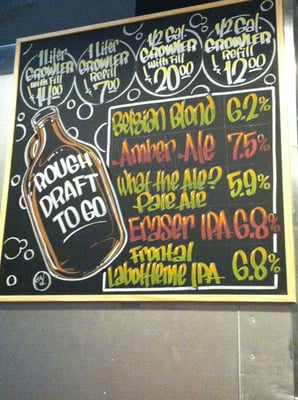 1 Liter
GROWLER
with Fill
$14.00
1 Liter
GROWLER
Refill
$7.00
1/2 Gal.
GROWLER
with Fill
$20.00
1/2 Gal.
GROWLER
Refill
$12.00
ROUGH
DRAFT
TO GO
Belgian Blond 6.2%
Amber Ale 7.5%
What the Ale?
Pale Ale 5.9%
Eraser IPA 6.8%
Frontal
Labottleme IPA 6.8%